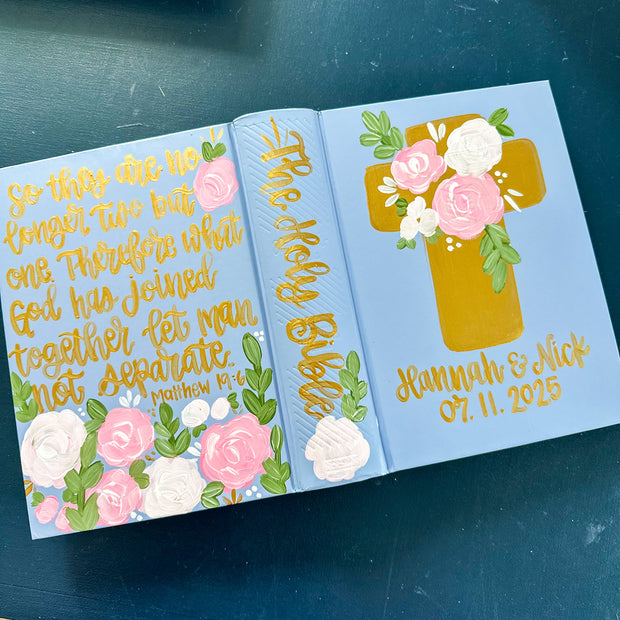 So they are no
longer two but
one. Therefore what
God has joined
together let man
not separate.
Matthew 19:6
The Holy Bible
Hannah & Nick
07. 11. 2025